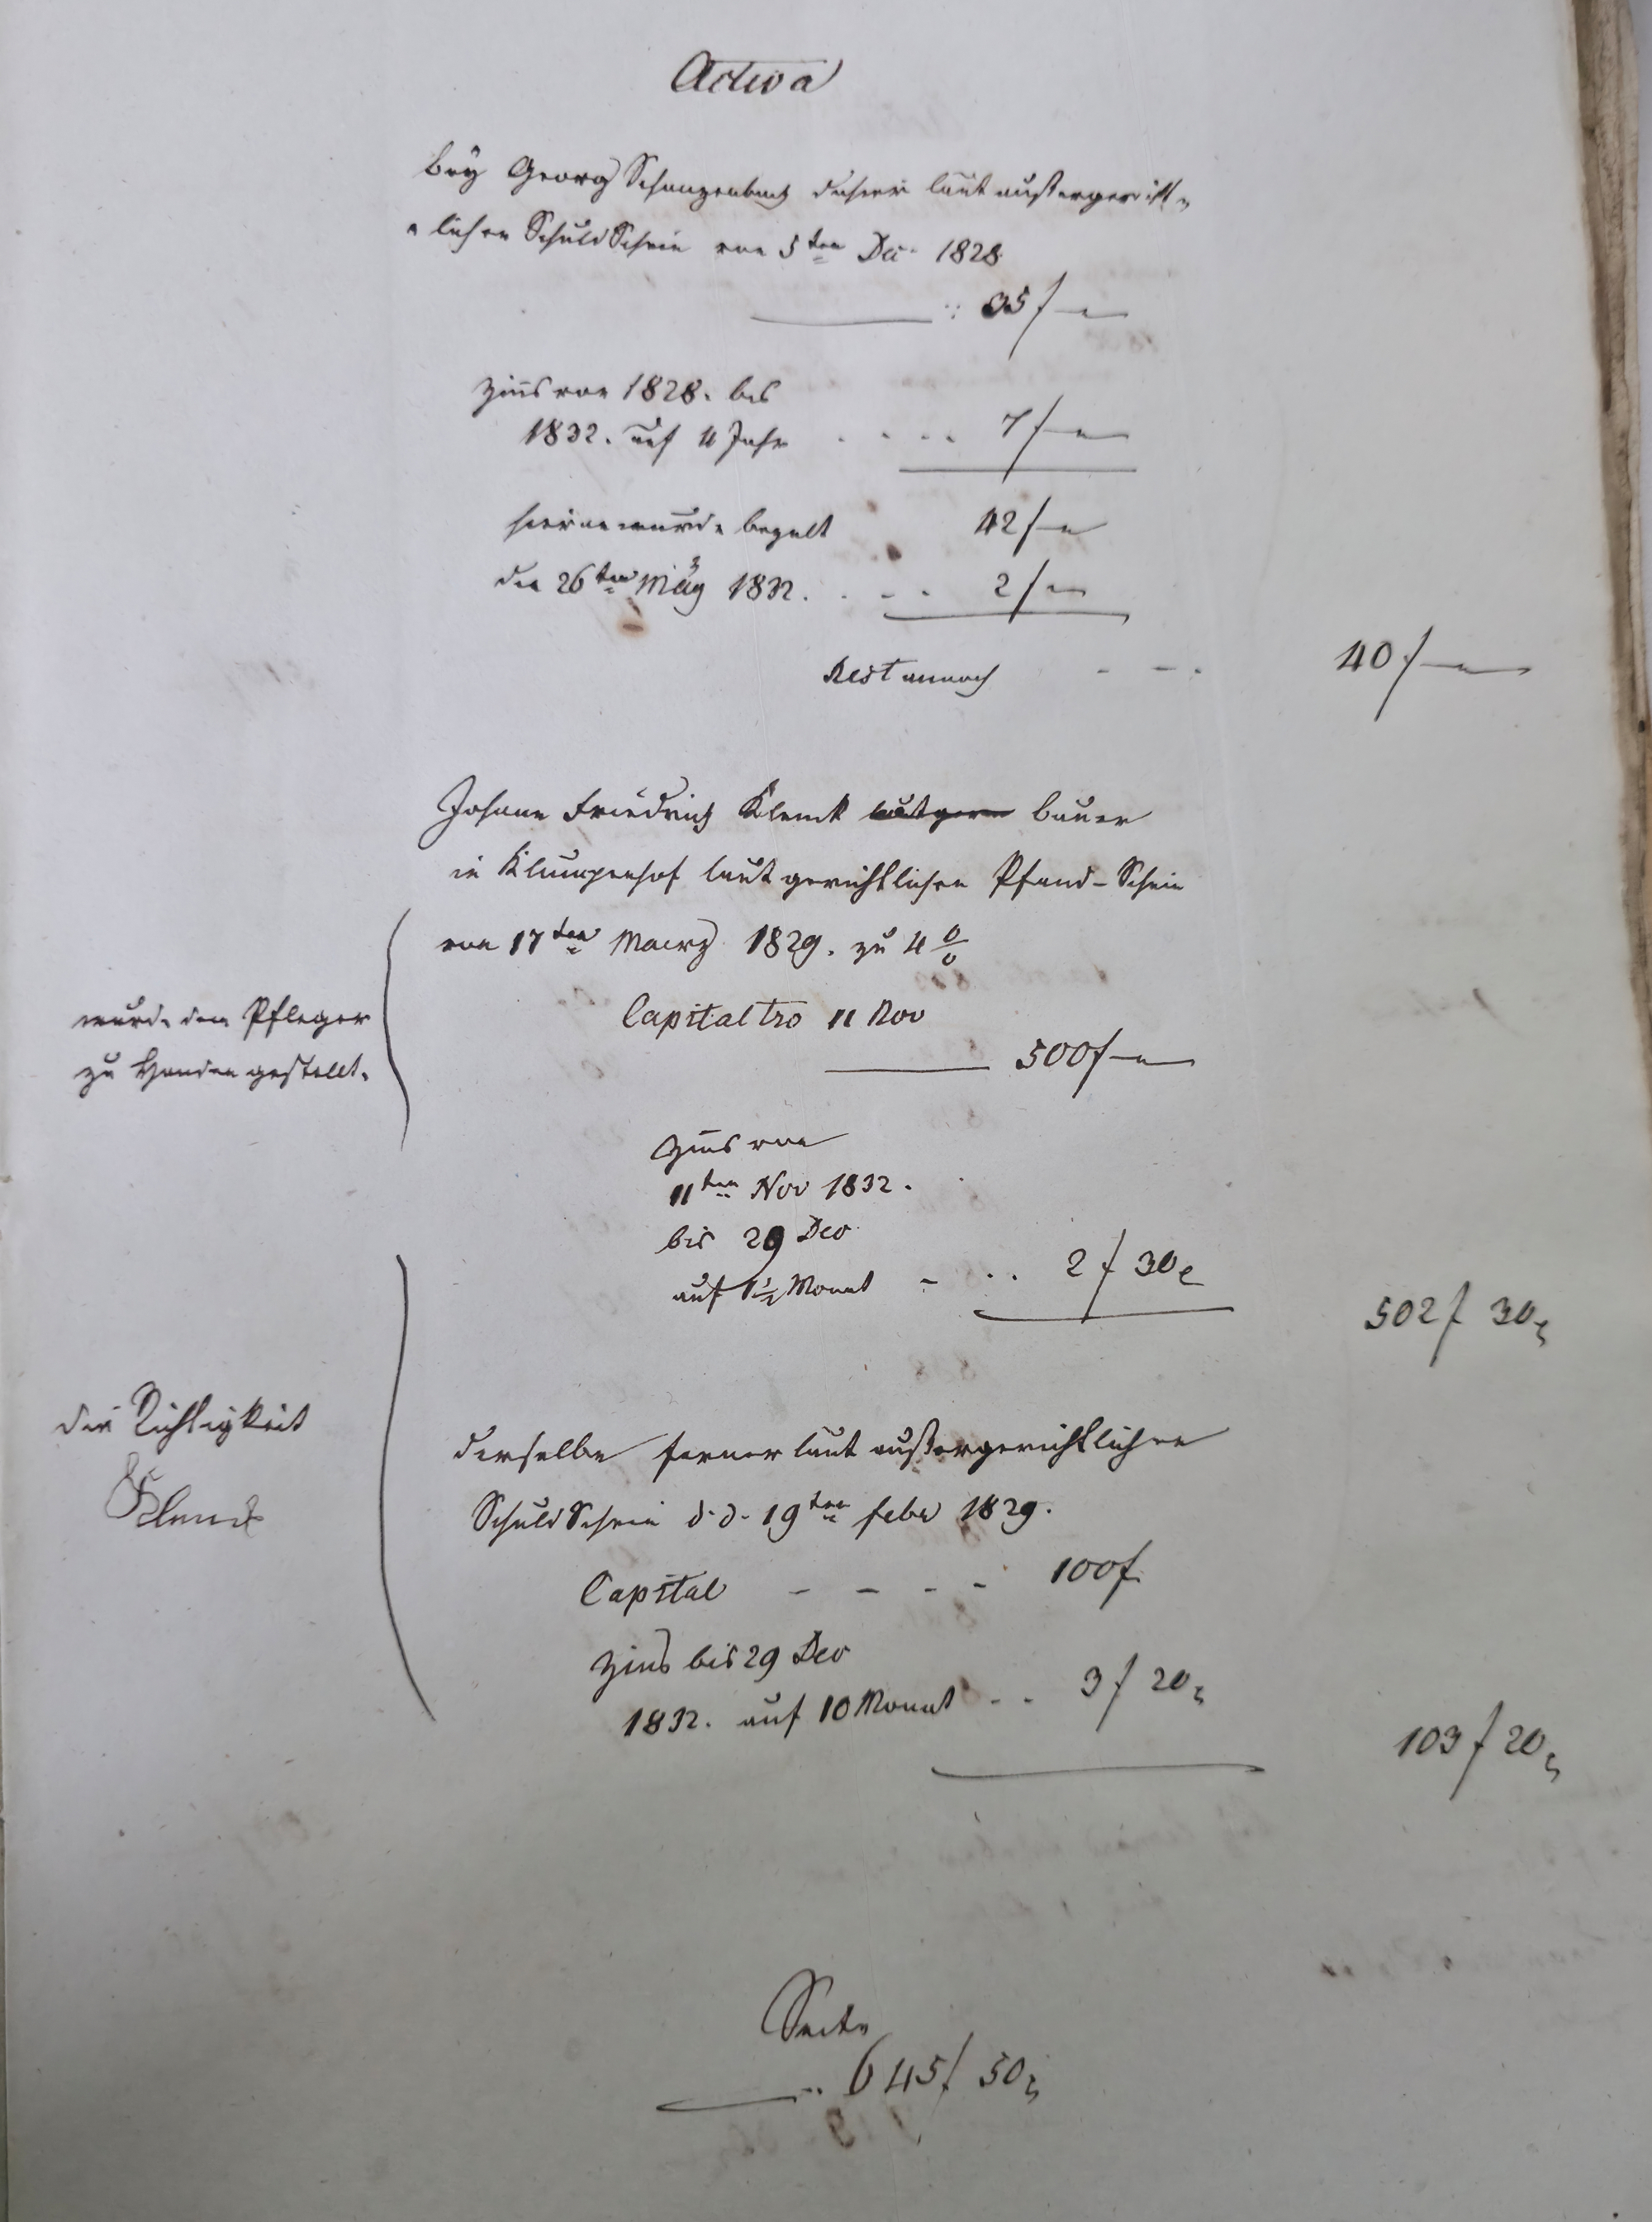 Activa
beÿ Georg Schanzenbach dahier laut außergericht=
=lichen Schuld Schein von 5ten Dec. 1828
35 f —
Zinns von 1828. bis
1832. auf 4 Jahr . . . . 7 f —
hieran wurde bezalt 42 f —
den 26ten März 1832. . . . 2 f —
Rest annoch - - - 40 f —
Johann Friedrich Klenck Bauer
in Klumpenhof laut gerichtlichen Pfand-Schein
von 17ten Maerz 1829. zu 4 0/0
wurde dem Pfleger
zu Handen gestellt.
Capital tro 11 Nov
500 f —
Zins von
11ten Nov 1832.
bis 29 Dec
auf 1½ Monat - . . 2 f 30
502 f 30
die Richtigkeit
Klenck
derselbe ferner laut außergerichtlichen
Schuld Schein d. d. 19ten febr 1829.
Capital - - - - 100 f.
Zins bis 29 Dec
1832. auf 10 Monat . . 3 f 20
103 f 20
Seite
645 f 50